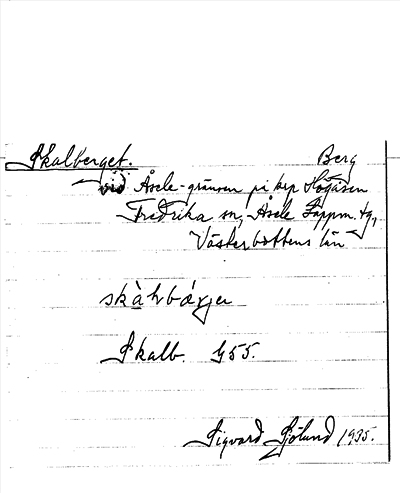 Skalberget. Berg
vid Åsele-gränsen på krp Högåsen
Fredrika sn, Åsele Lappm. tg,
Västerbottens län
skàhbǽrjer
Skalb. G55.
Sigvard Sjölund 1935.